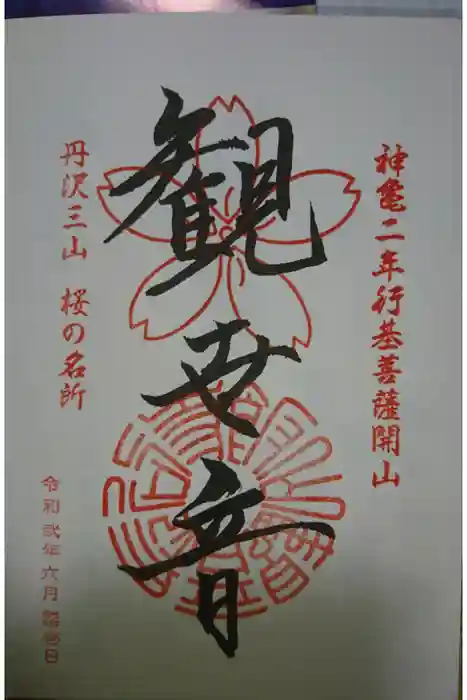 神亀二年行基菩薩開山
観世音
丹沢三山 桜の名所
令和弐年六月